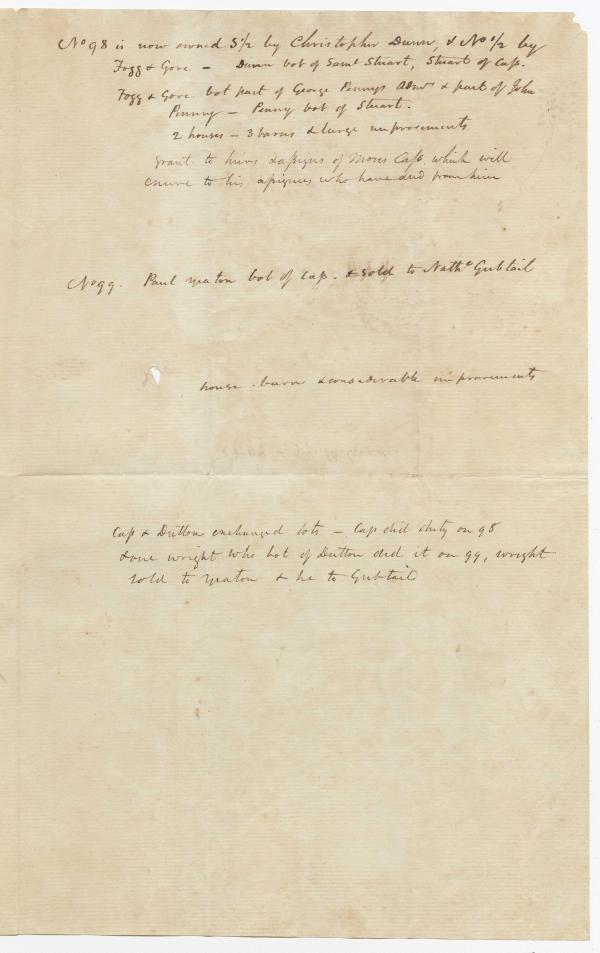 No 98 is now owned S 1/2 by Christopher Dunn, & No 1/2 by
Fogg & Gore – Dunn bot of Saml Stuart, Stuart of Cass.
Fogg & Gore bot part of George Pennys Admr & part of John
Penny – Penny bot of Stuart.
2 houses – 3 barns & large improvements
grant to heirs & assigns of Moses Cass, which will
enure to his assignees who have deed from him
No 99. Paul yeaton bot of Cass. & sold to Nathl Gubtail
house . barn & considerable improvements
Cass & Dutton exchanged lots – Cass did duty on 98
& one wright who bot of Dutton did it on 99, wright
sold to yeaton & he to Gubtail